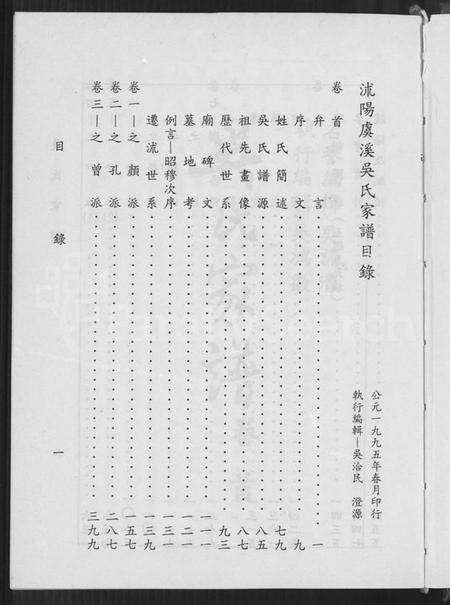 沭陽虞溪吳氏家譜目錄
公元一九九五年春月印行
執行編輯—吳治民 澄源
卷首
弁言 一
序文 九
姓氏簡述 七九
吳氏譜源 八五
祖先畫像 八七
歷代世系 九三
廟碑文 一一一
墓地考 一二一
例言—昭穆次序 一三一
遷流世系 一三九
卷一—之顏派 一五七
卷二—之孔派 二八七
卷三—之曾派 三九九
目錄 一